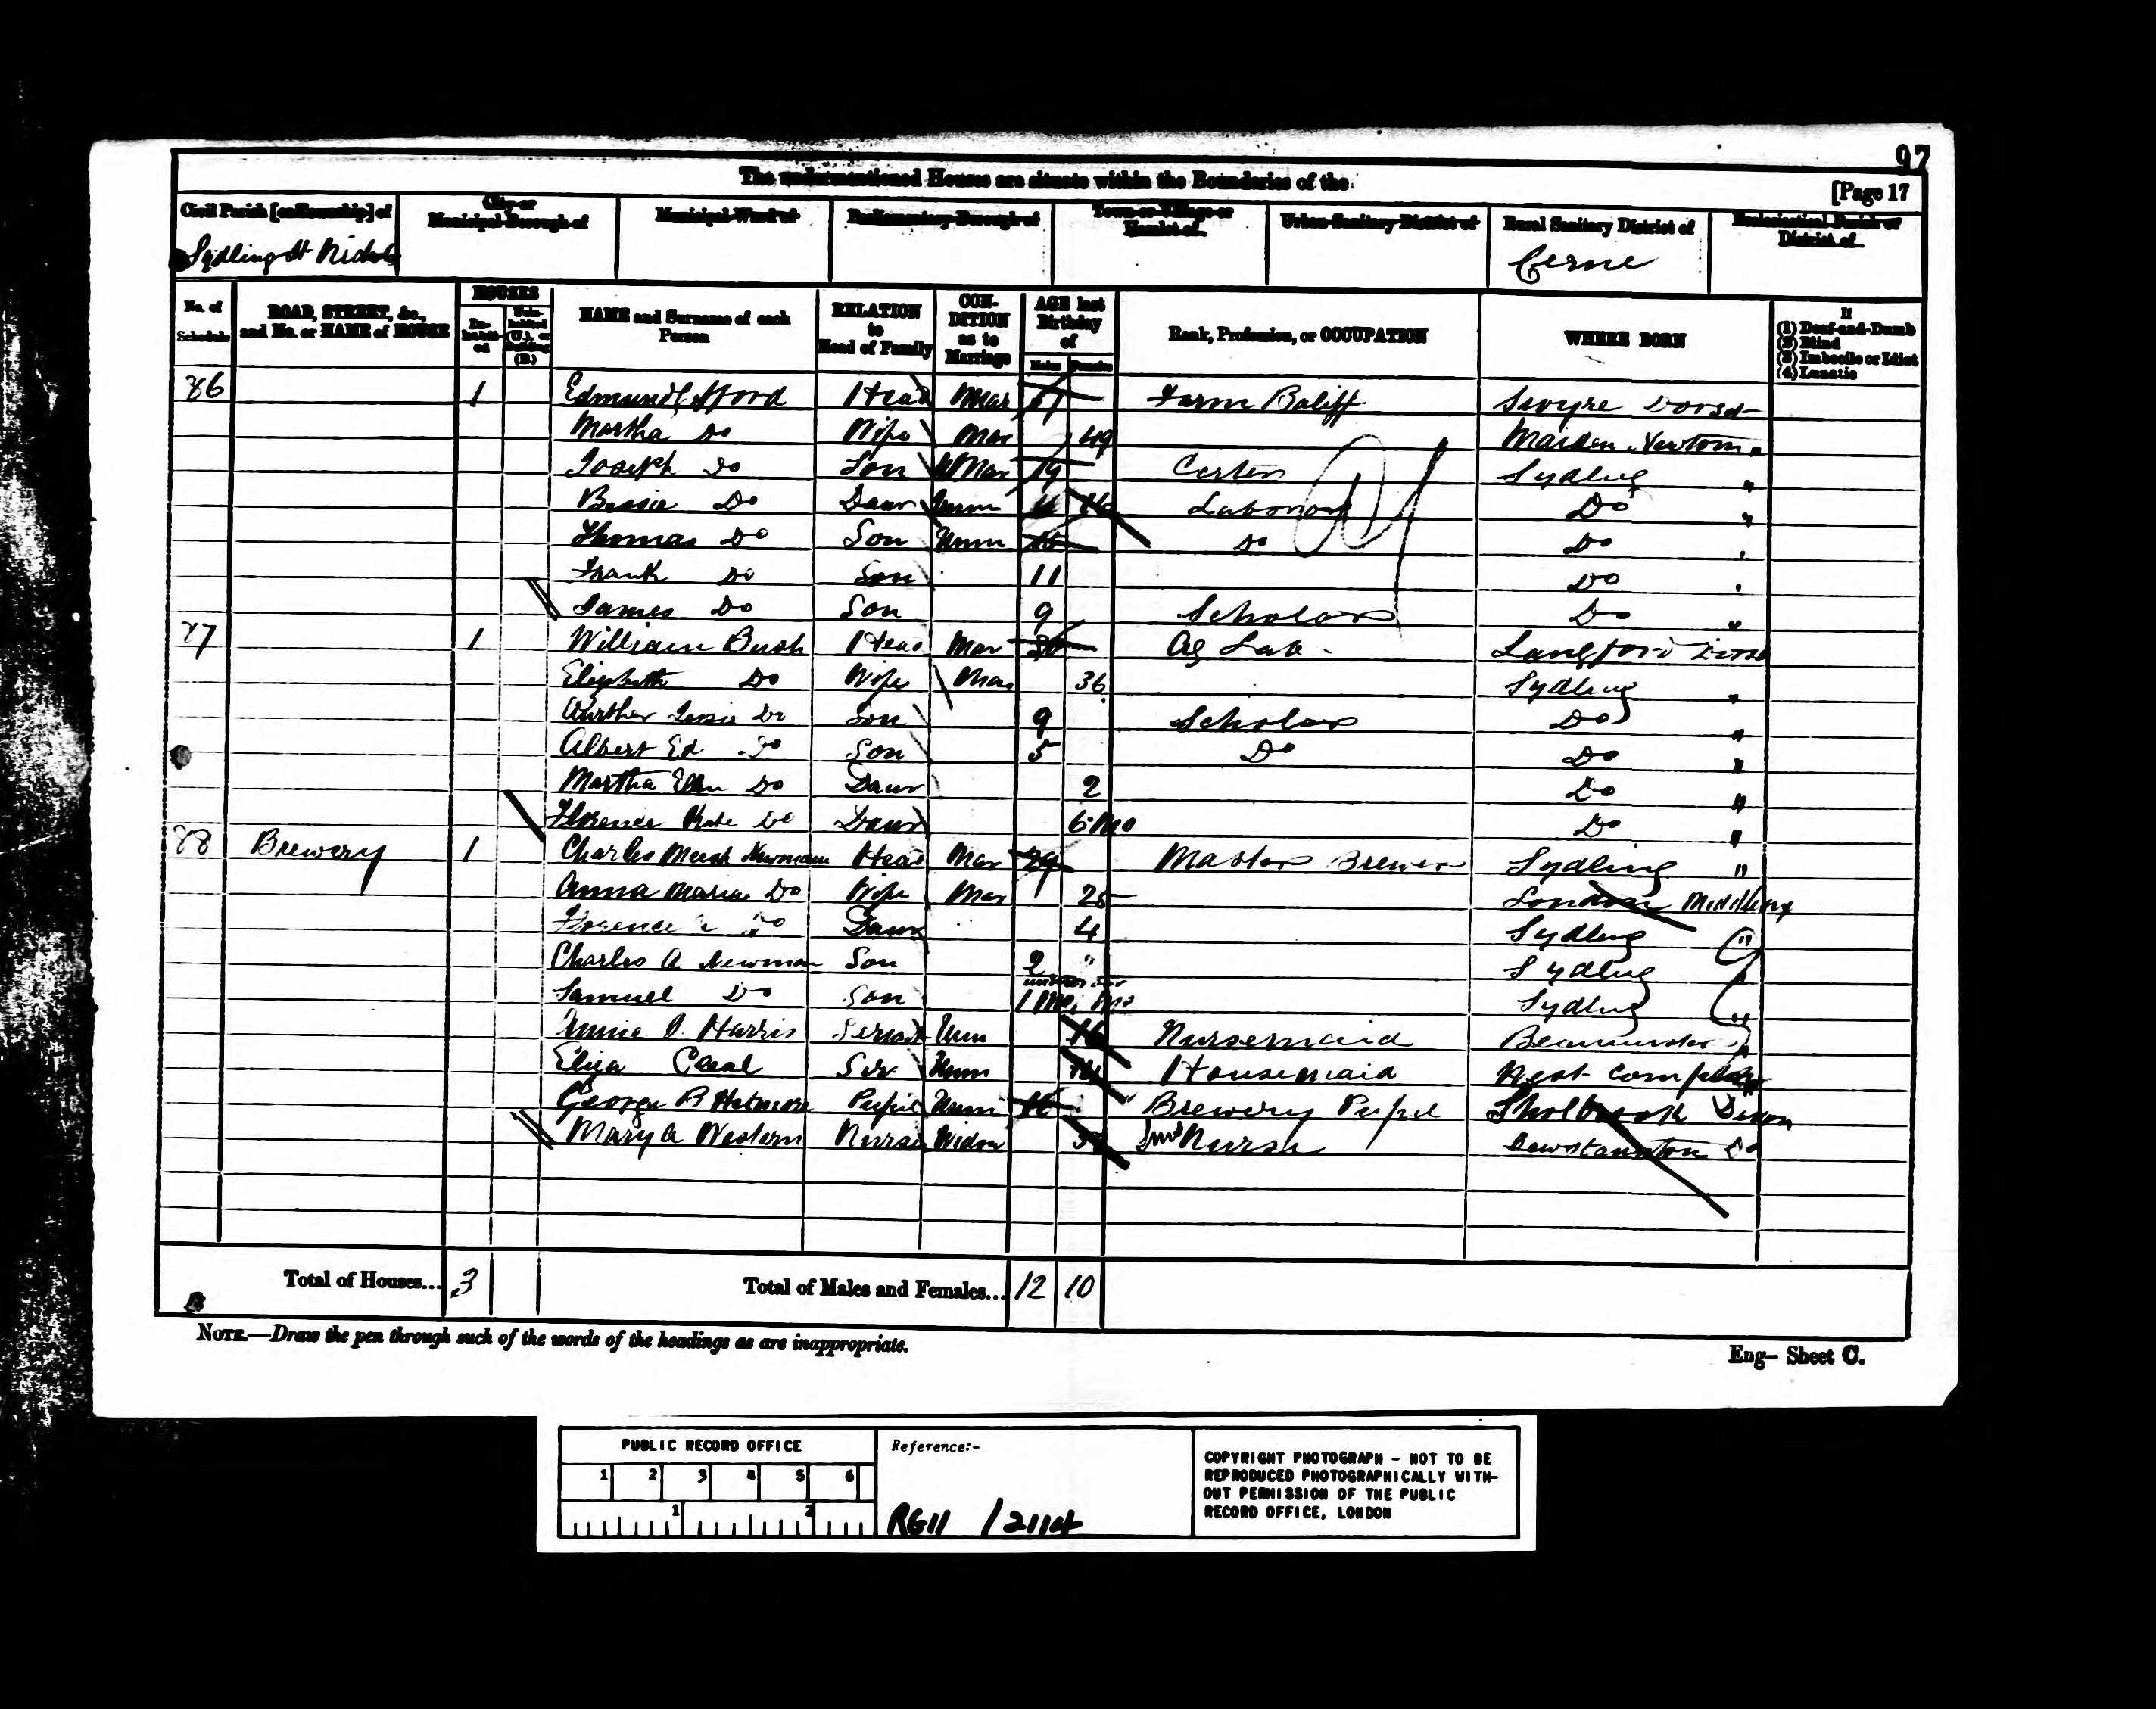 97
The undermentioned Houses are situate within the Boundaries of the
[Page 17
Civil Parish [or Township] of
City or Municipal Borough of
Municipal Ward of
Parliamentary Borough of
Town or Village or Hamlet of
Urban Sanitary District of
Rural Sanitary District of
Ecclesiastical Parish or District of
Sydling St Nichols
Cerne
No. of Schedule
ROAD, STREET, &c., and No. or NAME of HOUSE
HOUSES
In-habit-ed
Unin-habited (U.), or Building (B.)
NAME and Surname of each Person
RELATION to Head of Family
CON-DITION as to Marriage
AGE last Birthday of
Males
Females
Rank, Profession, or OCCUPATION
WHERE BORN
If
(1) Deaf-and-Dumb
(2) Blind
(3) Imbecile or Idiot
(4) Lunatic
86 1 Edmund Head Mar Farm Baliff Dorset
Martha Do Wife Mar 49 Maiden Newton "
Joseph Do Son 19 Carter Sydling "
Bessie Do Daur Unm 16 Labourer Do "
Thomas Do Son Unm Do Do
Frank Do Son 11 Do
James Do Son 9 Scholar Do "
87 1 William Bush Head Mar Ag Lab Langford
Elizabeth Do Wife Mar 36 Sydling "
Do Son 9 Scholar Do "
Albert Ed Do Son 5 Do Do "
Martha Ellen Do Daur 2 Do "
Florence Kate Do Daur 6 Mo Do "
88 Brewery 1 Charles Newman Head Mar 29 Master Brewer Sydling "
Anna Maria Do Wife Mar 25 London Middlesex
Florence Do Daur 4 Sydling "
Charles A Newman Son 2 " Sydling
Samuel Do Son 1 Mo Sydling "
Annie Harris Servant Unm 16 Nursemaid Beaminster "
Eliza Cleal Ser Unm Housemaid West Compton
George R Pupil Unm 16 Brewery Pupil Devon
Mary A Western Nurse Widow Nurse Do
Total of Houses... 3
Total of Males and Females... 12 10
B
NOTE.—Draw the pen through such of the words of the headings as are inappropriate.
Eng— Sheet C.
PUBLIC RECORD OFFICE
1 2 3 4 5 6
1 2
Reference:-
RG11 /2114
COPYRIGHT PHOTOGRAPH - NOT TO BE
REPRODUCED PHOTOGRAPHICALLY WITH-
OUT PERMISSION OF THE PUBLIC
RECORD OFFICE, LONDON